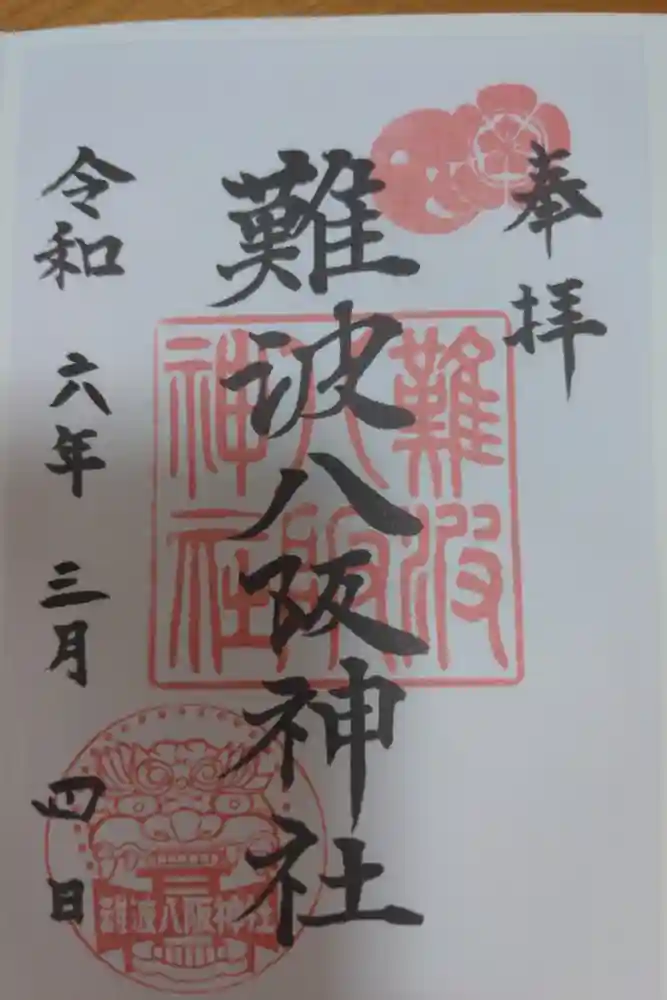 奉拝
難波八阪神社
難波
八阪
神社
令和 六年 三月 四日
難波八阪神社